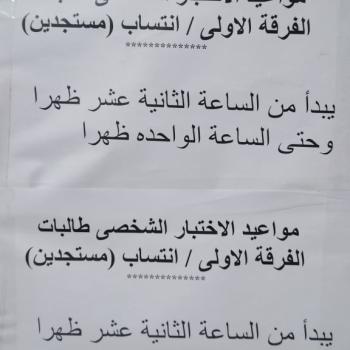 مواعيد الاختبار الشخصى
الفرقة الاولى / انتساب (مستجدين)
**************
يبدأ من الساعة الثانية عشر ظهرا
وحتى الساعة الواحده ظهرا
مواعيد الاختبار الشخصى طالبات
الفرقة الاولى / انتساب (مستجدين)
**************
يبدأ من الساعة الثانية عشر ظهرا